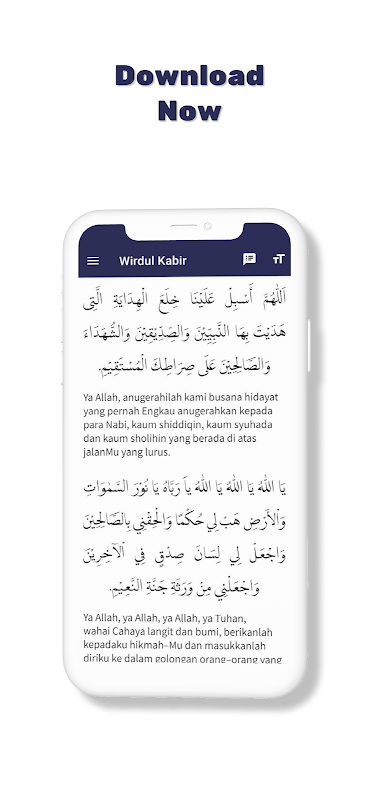 Download
Now
Wirdul Kabir
اَللّٰهُمَّ أَسْبِلْ عَلَيْنَا خِلَعَ الْهِدَايَةِ الَّتِى
هَدَيْتَ بِهَا النَّبِيِّيْنَ وَالصِّدِّيْقِيْنَ وَالشُّهَدَاءَ
وَالصَّالِحِيْنَ عَلَى صِرَاطِكَ الْمُسْتَقِيْمِ.
Ya Allah, anugerahilah kami busana hidayat
yang pernah Engkau anugerahkan kepada
para Nabi, kaum shiddiqin, kaum syuhada
dan kaum sholihin yang berada di atas
jalanMu yang lurus.
يَا اَللهُ يَا اَللهُ يَا اَللهُ يَا رَبَّاهُ يَا نُوْرَ السَّمٰوَاتِ
وَالْأَرْضِ هَبْ لِي حُكْمًا وَالْحِقْنِي بِالصَّالِحِيْنَ
وَاجْعَلْ لِي لِسَانَ صِدْقٍ فِي الْآخِرِيْنَ
وَاجْعَلْنِي مِنْ وَرَثَةِ جَنَّةِ النَّعِيْمِ.
Ya Allah, ya Allah, ya Allah, ya Tuhan,
wahai Cahaya langit dan bumi, berikanlah
kepadaku hikmah–Mu dan masukkanlah
diriku ke dalam golongan orang–orang yang